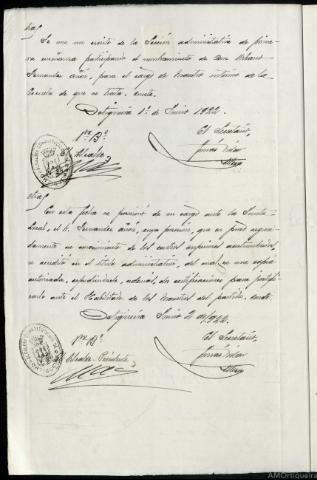 otra/
Se une un oficio de la Sección administrativa de prime-
ra enseñanza participando el nombramiento de don Urbano
Fernandez Arias, para el cargo de maestro interino de la
Escuela de que se trata. Anoto.
Ortigueira 1º de Junio 1922.
Vº Bº
El Alcalde
El Secretario,
otra/
Con esta fecha se posesionó de su cargo ante la Junta
local, el Sr. Fernandez Arias, cuya posesión, que se puso
en conocimiento de los centros superiores acostumbrados,
se acreditó en el título administrativo, del cual, se une copia
autorizada, expidiéndole, además, dos certificaciones para justifi-
cante ante el Habilitado de los maestros del partido. Anoto.
Ortigueira Junio 2 de 1922.
Vº Bº
El Alcalde-Presidente
El Secretario,
AMOrtigueira